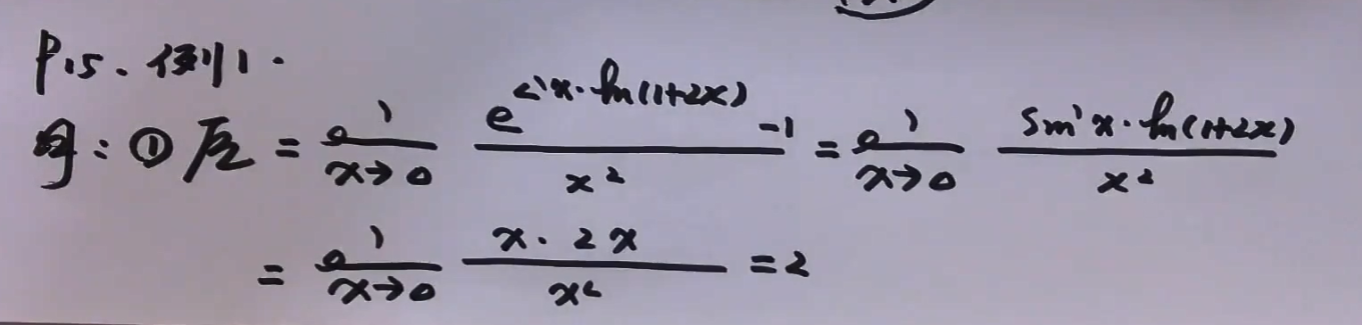 P15. 例1.
解: ① 原 = lim x→0 (e^(sin x · ln(1+2x)) - 1) / x² = lim x→0 (sin x · ln(1+2x)) / x²
= lim x→0 (x · 2x) / x² = 2